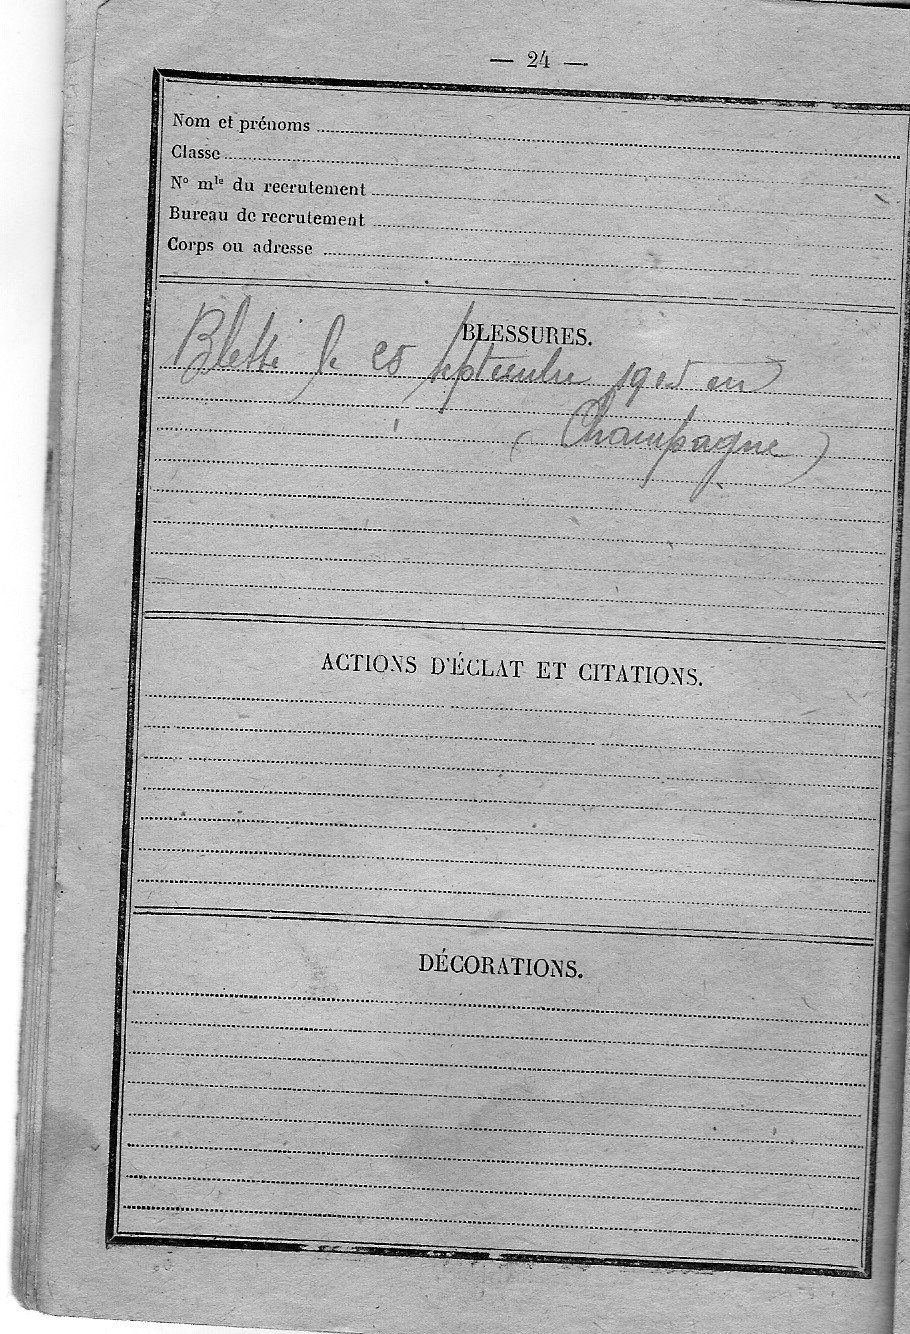 — 24 —
Nom et prénoms
Classe
N° mle du recrutement
Bureau de recrutement
Corps ou adresse
BLESSURES.
Blessé le 25 septembre 1915 en
(Champagne)
ACTIONS D'ÉCLAT ET CITATIONS.
DÉCORATIONS.